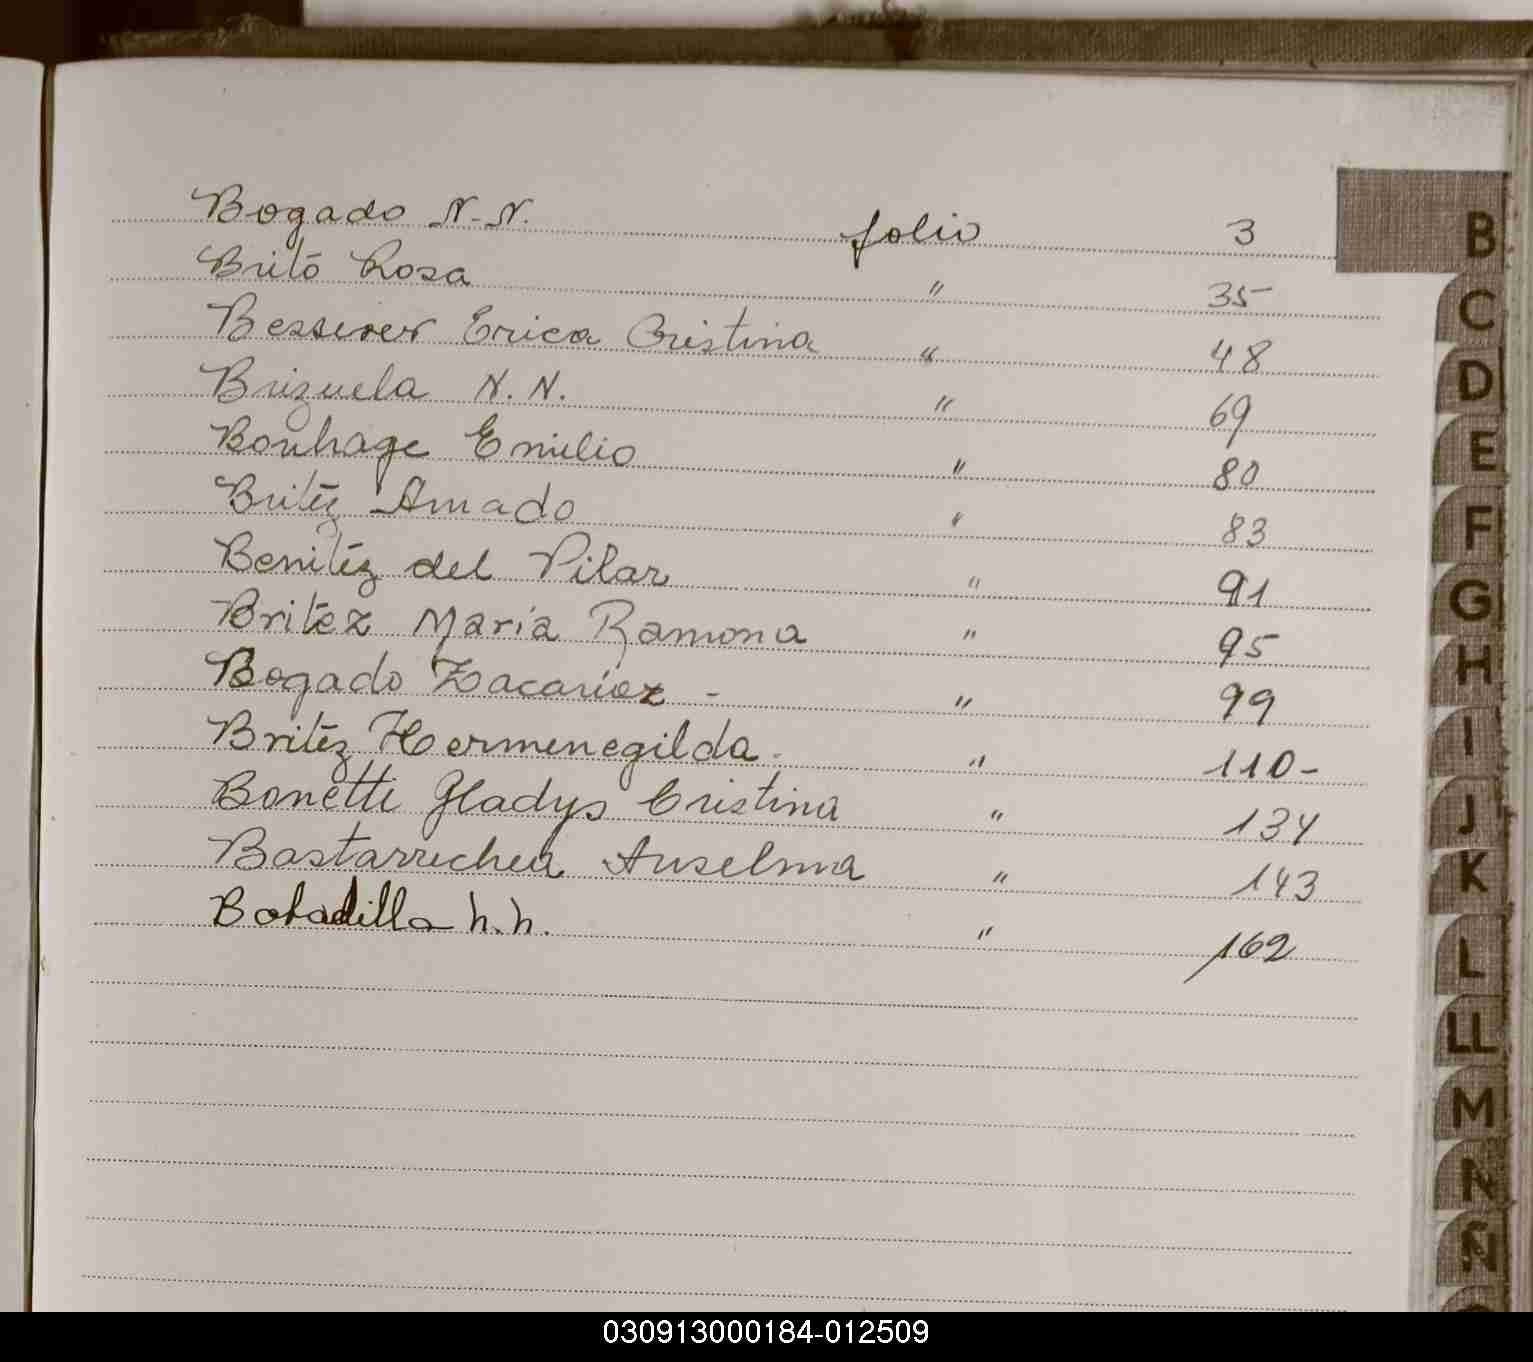 Bogado N.N. folio 3
Brito Rosa " 35
Besserer Erica Cristina " 48
Brizuela N.N. " 69
Bonhage Emilio " 80
Britez Amado " 83
Benitez del Pilar " 91
Britez Maria Ramona " 95
Bogado Zacariaz - " 99
Britez Hermenegilda - " 110-
Bonetti Gladys Cristina " 134
Bastarrechea Anselma " 143
Bobadilla n.n. " 162
B
C
D
E
F
G
H
I
J
K
L
LL
M
N
Ñ
030913000184-012509